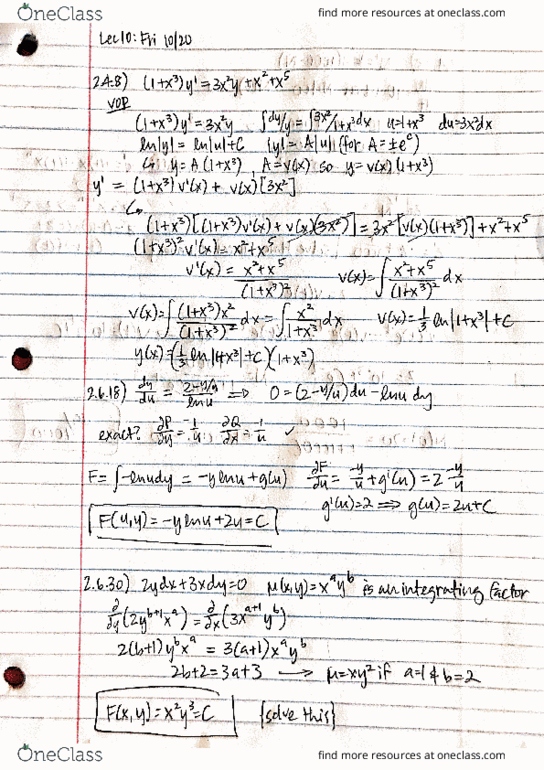 OneClass
find more resources at oneclass.com
Lec10: Fri 10/20
2.4.8) (1+x³)y' = 3x²y + x² + x⁵
VOP
(1+x³)y' = 3x²y ∫dy/y = ∫3x²/1+x³ dx u=1+x³ du=3x²dx
ln|y| = ln|u|+C |y| = A|u| (for A=±eᶜ)
↳ y=A(1+x³), A=v(x) so y=v(x)(1+x³)
y' = (1+x³)v'(x) + v(x)[3x²]
↳
(1+x³)[(1+x³)v'(x) + v(x)(3x²)] = 3x²[v(x)(1+x³)] + x²+x⁵
(1+x³)²v'(x) = x²+x⁵
v'(x) = x²+x⁵/(1+x³)² v(x)=∫x²+x⁵/(1+x³)² dx
v(x)=∫(1+x³)x²/(1+x³)² dx = ∫x²/1+x³ dx v(x)=⅓ ln|1+x³|+C
y(x)=(⅓ ln|1+x³|+C)(1+x³)
2.6.18) dy/du = 2-y/u/lnu ⟹ 0=(2-y/u)du - lnu dy
exact? ∂P/∂y = -1/u ∂Q/∂x = -1/u ✓
F=∫-lnudy = -ylnu+g(u) ∂F/∂u = -y/u+g'(u)=2-y/u
g'(u)=2 ⟹ g(u)=2u+C
F(u,y)=-ylnu+2u=C
2.6.30) 2ydx+3xdy=0 μ(x,y)=xᵃyᵇ is an integrating factor
∂/∂y(2yᵇ⁺¹xᵃ) = ∂/∂x(3xᵃ⁺¹yᵇ)
2(b+1)yᵇxᵃ = 3(a+1)xᵃyᵇ
2b+2=3a+3 ⟶ μ=xy² if a=1 & b=2
F(x,y)=x²y³=C {solve this}
OneClass
find more resources at oneclass.com